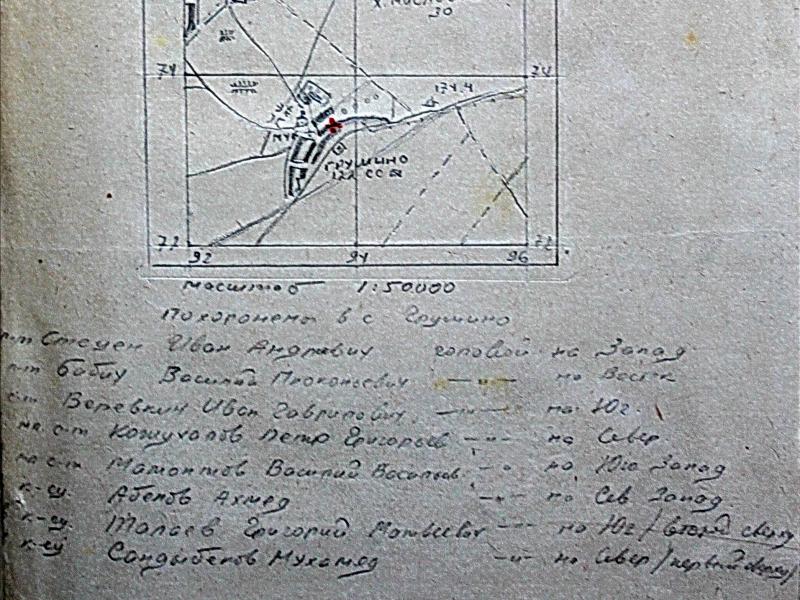 30
74
74
174.4
МУК
ГРУШИНО
122 ССЫ
72
72
92
94
96
масштаб 1:50000
Похоронены в с Грушино
Иван Андреевич головой на Запад
Бабич Василий Прокопьевич —"— на Восток
с-т Веревкин Иван Гаврилович —"— на Юг.
мл. с-т Кожухалов Петр Григорьев —"— на Север.
мл с-т Мамонтов Василий Васильев —"— на Юго Запад
к-ец. Абепов Ахмед —"— на Сев Запад.
к-ец. Григорий Матвеевич —"— на Юг/второй сверху
к-ец Сандыбеков Мухамед —"— на Север/первый сверху/